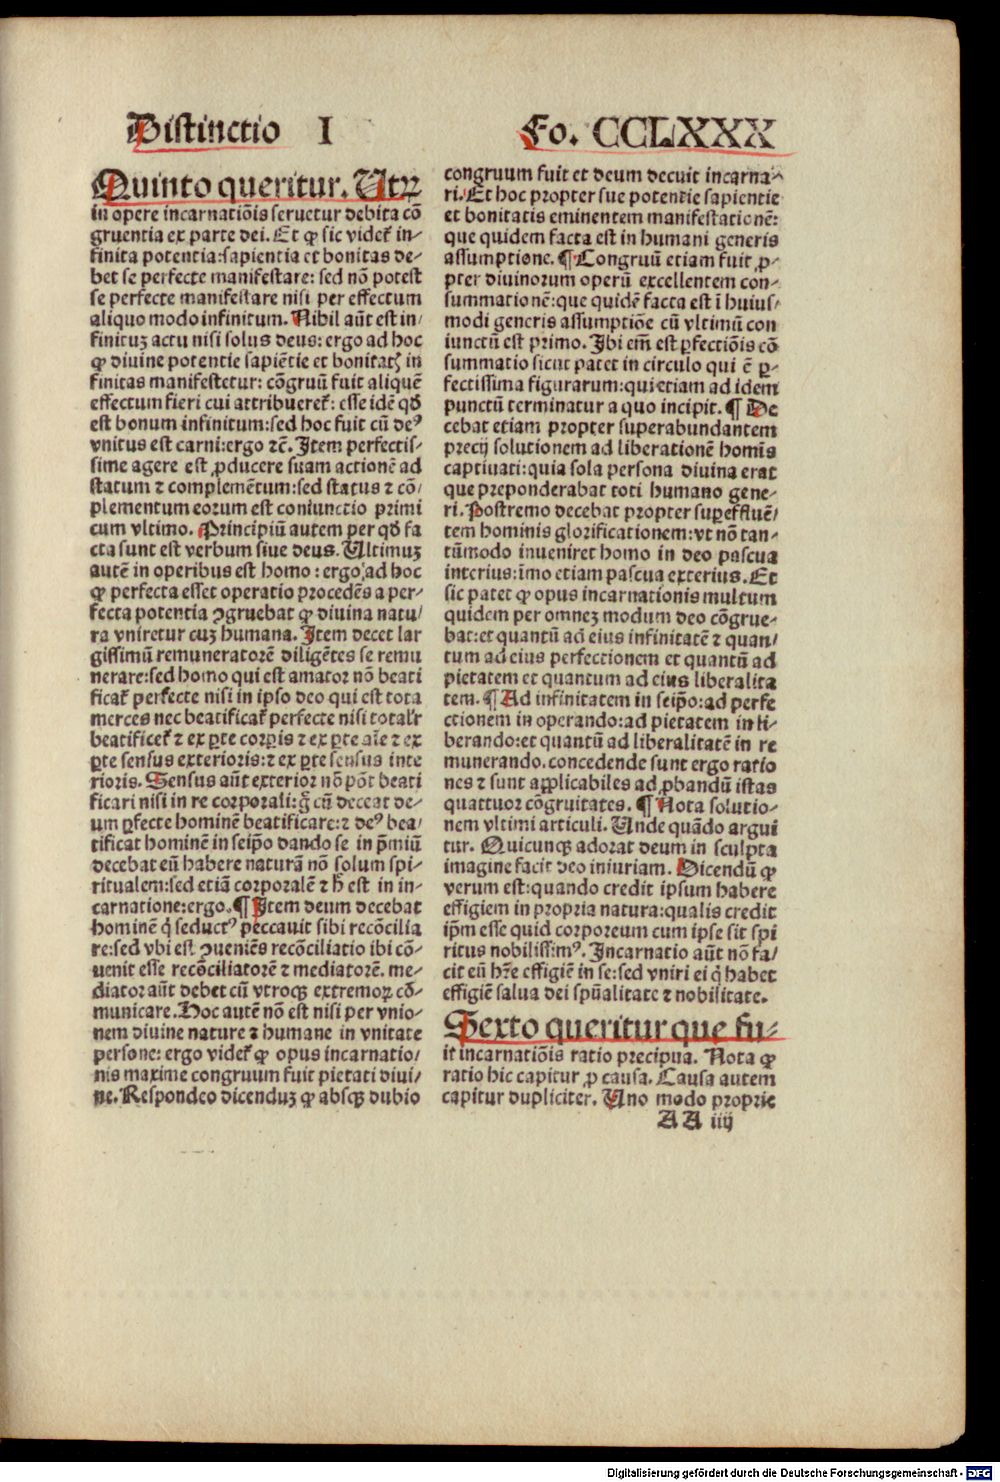 Distinctio I
Fo. CCLXXX
Quinto queritur. Utrꝝ
in opere incarnatiōis seruetur debita cō
gruentia ex parte dei. Et ꝙ sic videt᷑ in-
finita potentia:sapientia et bonitas de-
bet se perfecte manifestare: sed nō potest
se perfecte manifestare nisi per effectum
aliquo modo infinitum. Nihil aūt est in/
finituꝫ actu nisi solus deus: ergo ad hoc
ꝙ diuine potentie sapiētie et bonitatꝭ in
finitas manifestetur: cōgruū fuit aliquē
effectum fieri cui attribueret᷑: esse idē qḋ
est bonum infinitum:sed hoc fuit cū deꝰ
vnitus est carni:ergo ꝛc̄. Item perfectis-
sime agere est ꝓducere suam actionē ad
statum ⁊ complemētum:sed status ⁊ cō/
plementum eorum est coniunctio primi
cum vltimo. Principiū autem per qḋ fa
cta sunt est verbum siue deus. Ultimuꝫ
autē in operibus est homo : ergo ad hoc
ꝙ perfecta esset operatio procedēs a per-
fecta potentia ꝯgruebat ꝙ diuina natu/
ra vniretur cuꝫ humana. Item decet lar
gissimū remuneratorē diligētes se remu
nerare:sed homo qui est amator nō beati
ficat᷑ perfecte nisi in ipso deo qui est tota
merces nec beatificat᷑ perfecte nisi totalr̄
beatificet᷑ ⁊ ex ꝑte corꝑis ⁊ ex ꝑte aīe ⁊ ex
ꝑte sensus exterioris:⁊ ex ꝑte sensus inte
rioris. Sensus aūt exterior nō pōt beati
ficari nisi in re corporali:g̊ cū deceat de-
um ꝑfecte hominē beatificare:⁊ deꝰ bea/
tificat hominē in seip̄o dando se in p̄miū
decebat eū habere naturā nō solum spi-
ritualem:sed etiā corporalē ⁊ h̄ est in in-
carnatione:ergo.¶ Item deum decebat
hominē q̇ seductꝰ peccauit sibi recōcilia
re:sed vbi est ꝯueniēs recōciliatio ibi cō-
uenit esse recōciliatorē ⁊ mediatorē. me-
diator aūt debet cū vtroqꝫ extremoꝝ cō-
municare. Hoc autē nō est nisi per vnio-
nem diuine nature ⁊ humane in vnitate
persone: ergo videt᷑ ꝙ opus incarnatio/
nis maxime congruum fuit pietati diui/
ne. Respondeo dicenduꝫ ꝙ absqꝫ dubio
congruum fuit et deum decuit incarna-
ri. Et hoc propter sue potentie sapientie
et bonitatis eminentem manifestationē:
que quidem facta est in humani generis
assumptione. ¶ Congruū etiam fuit ꝓ-
pter diuinorum operū excellentem con-
summationē:que quidē facta est ī huius/
modi generis assumptiōe cū vltimū con
iunctū est primo. Ibi em̄ est ꝑfectiōis cō
summatio sicut patet in circulo qui ē ꝑ-
fectissima figurarum:qui etiam ad idem
punctū terminatur a quo incipit. ¶ De
cebat etiam propter superabundantem
precij solutionem ad liberationē homīs
captiuati:quia sola persona diuina erat
que preponderabat toti humano gene-
ri. Postremo decebat propter suꝑeffluē/
tem hominis glorificationem:vt nō tan-
tūmodo inueniret homo in deo pascua
interius:īmo etiam pascua exterius. Et
sic patet ꝙ opus incarnationis multum
quidem per omneꝫ modum deo cōgrue-
bat:et quantū ad eius infinitatē ⁊ quan/
tum ad eius perfectionem et quantū ad
pietatem et quantum ad eius liberalita
tem. ¶ Ad infinitatem in seip̄o:ad perfe
ctionem in operando:ad pietatem in li-
berando:et quantū ad liberalitatē in re
munerando.concedende sunt ergo ratio
nes ⁊ sunt applicabiles ad ꝓbandū istas
quattuor cōgruitates. ¶ Nota solutio-
nem vltimi articuli. Unde quādo argui
tur. Quicunqꝫ adorat deum in sculpta
imagine facit deo iniuriam. Dicendū ꝙ
verum est:quando credit ipsum habere
effigiem in propria natura:qualis credit
ip̄m esse quid corporeum cum ipse sit spi
ritus nobilissimꝰ. Incarnatio aūt nō fa/
cit eū hr̄e effigiē in se:sed vniri ei q̇ habet
effigiē salua dei spūalitate ⁊ nobilitate.
Sexto queritur que fu-
it incarnatiōis ratio precipua. Nota ꝙ
ratio hic capitur ꝓ causa. Causa autem
capitur dupliciter. Uno modo proprie
AA iiij
Digitalisierung gefördert durch die Deutsche Forschungsgemeinschaft - DFG